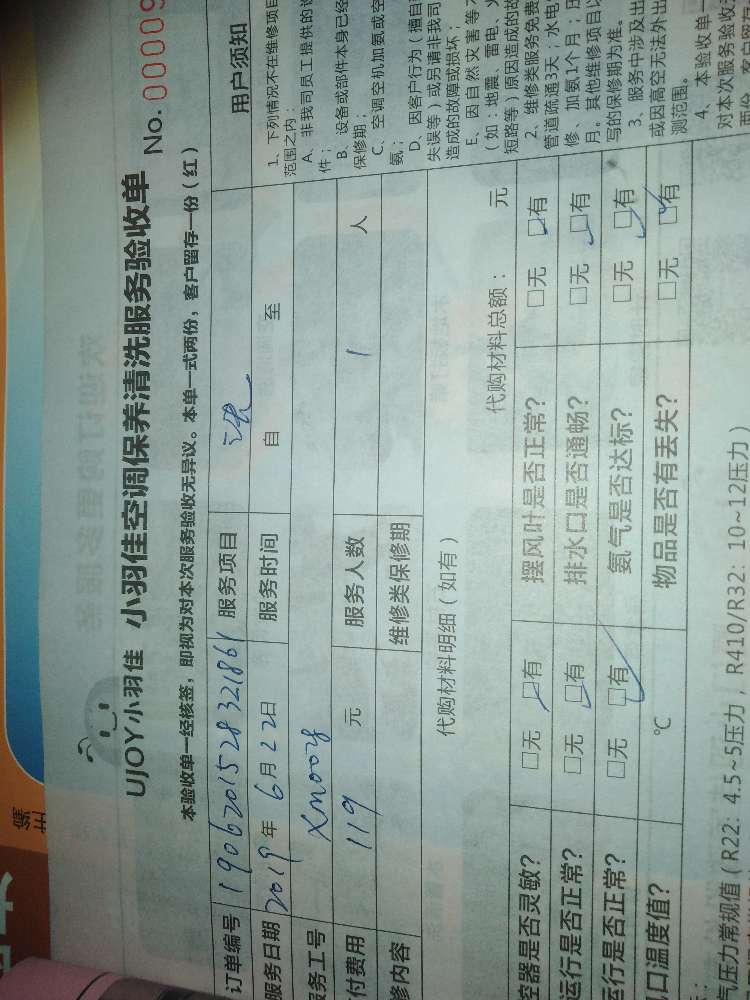 UJOY小羽佳 小羽佳空调保养清洗服务验收单 No. 00009
本验收单一经核签，即视为对本次服务验收无异议。本单一式两份，客户留存一份（红）
订单编号 1906201528321861 服务项目 洗
服务日期 2019年6月22日 服务时间 自 至
务工号 Xm007
付费用 119 元 服务人数 1 人
修内容 维修类保修期
代购材料明细（如有） 代购材料总额： 元
容器是否灵敏？ □无 □有 摆风叶是否正常？ □无 □有
运行是否正常？ □无 □有 排水口是否通畅？ □无 □有
运行是否正常？ □无 □有 氨气是否达标？ □无 □有
口温度值？ ℃ 物品是否有丢失？ □无 □有
气压力常规值（R22: 4.5~5压力，R410/R32: 10~12压力）
用户须知
1、下列情况不在维修项目
范围之内：
A、非我司员工提供的
件；
B、设备或部件本身已经
保修期；
C、空调空机加氨或空
氨；
D、因客户行为（擅自
失误等）或另请非我司
造成的故障或损坏；
E、因自然灾害等不
（如：地震、雷电、火
短路等）原因造成的故
2、维修类服务免费
管道疏通3天；水电
修、加氨1个月；压
月。其他维修项目以
写的保修期为准。
3、服务中涉及出
或因高空无法外出
测范围。
4、本验收单一
对本次服务验收
两份，客户留存